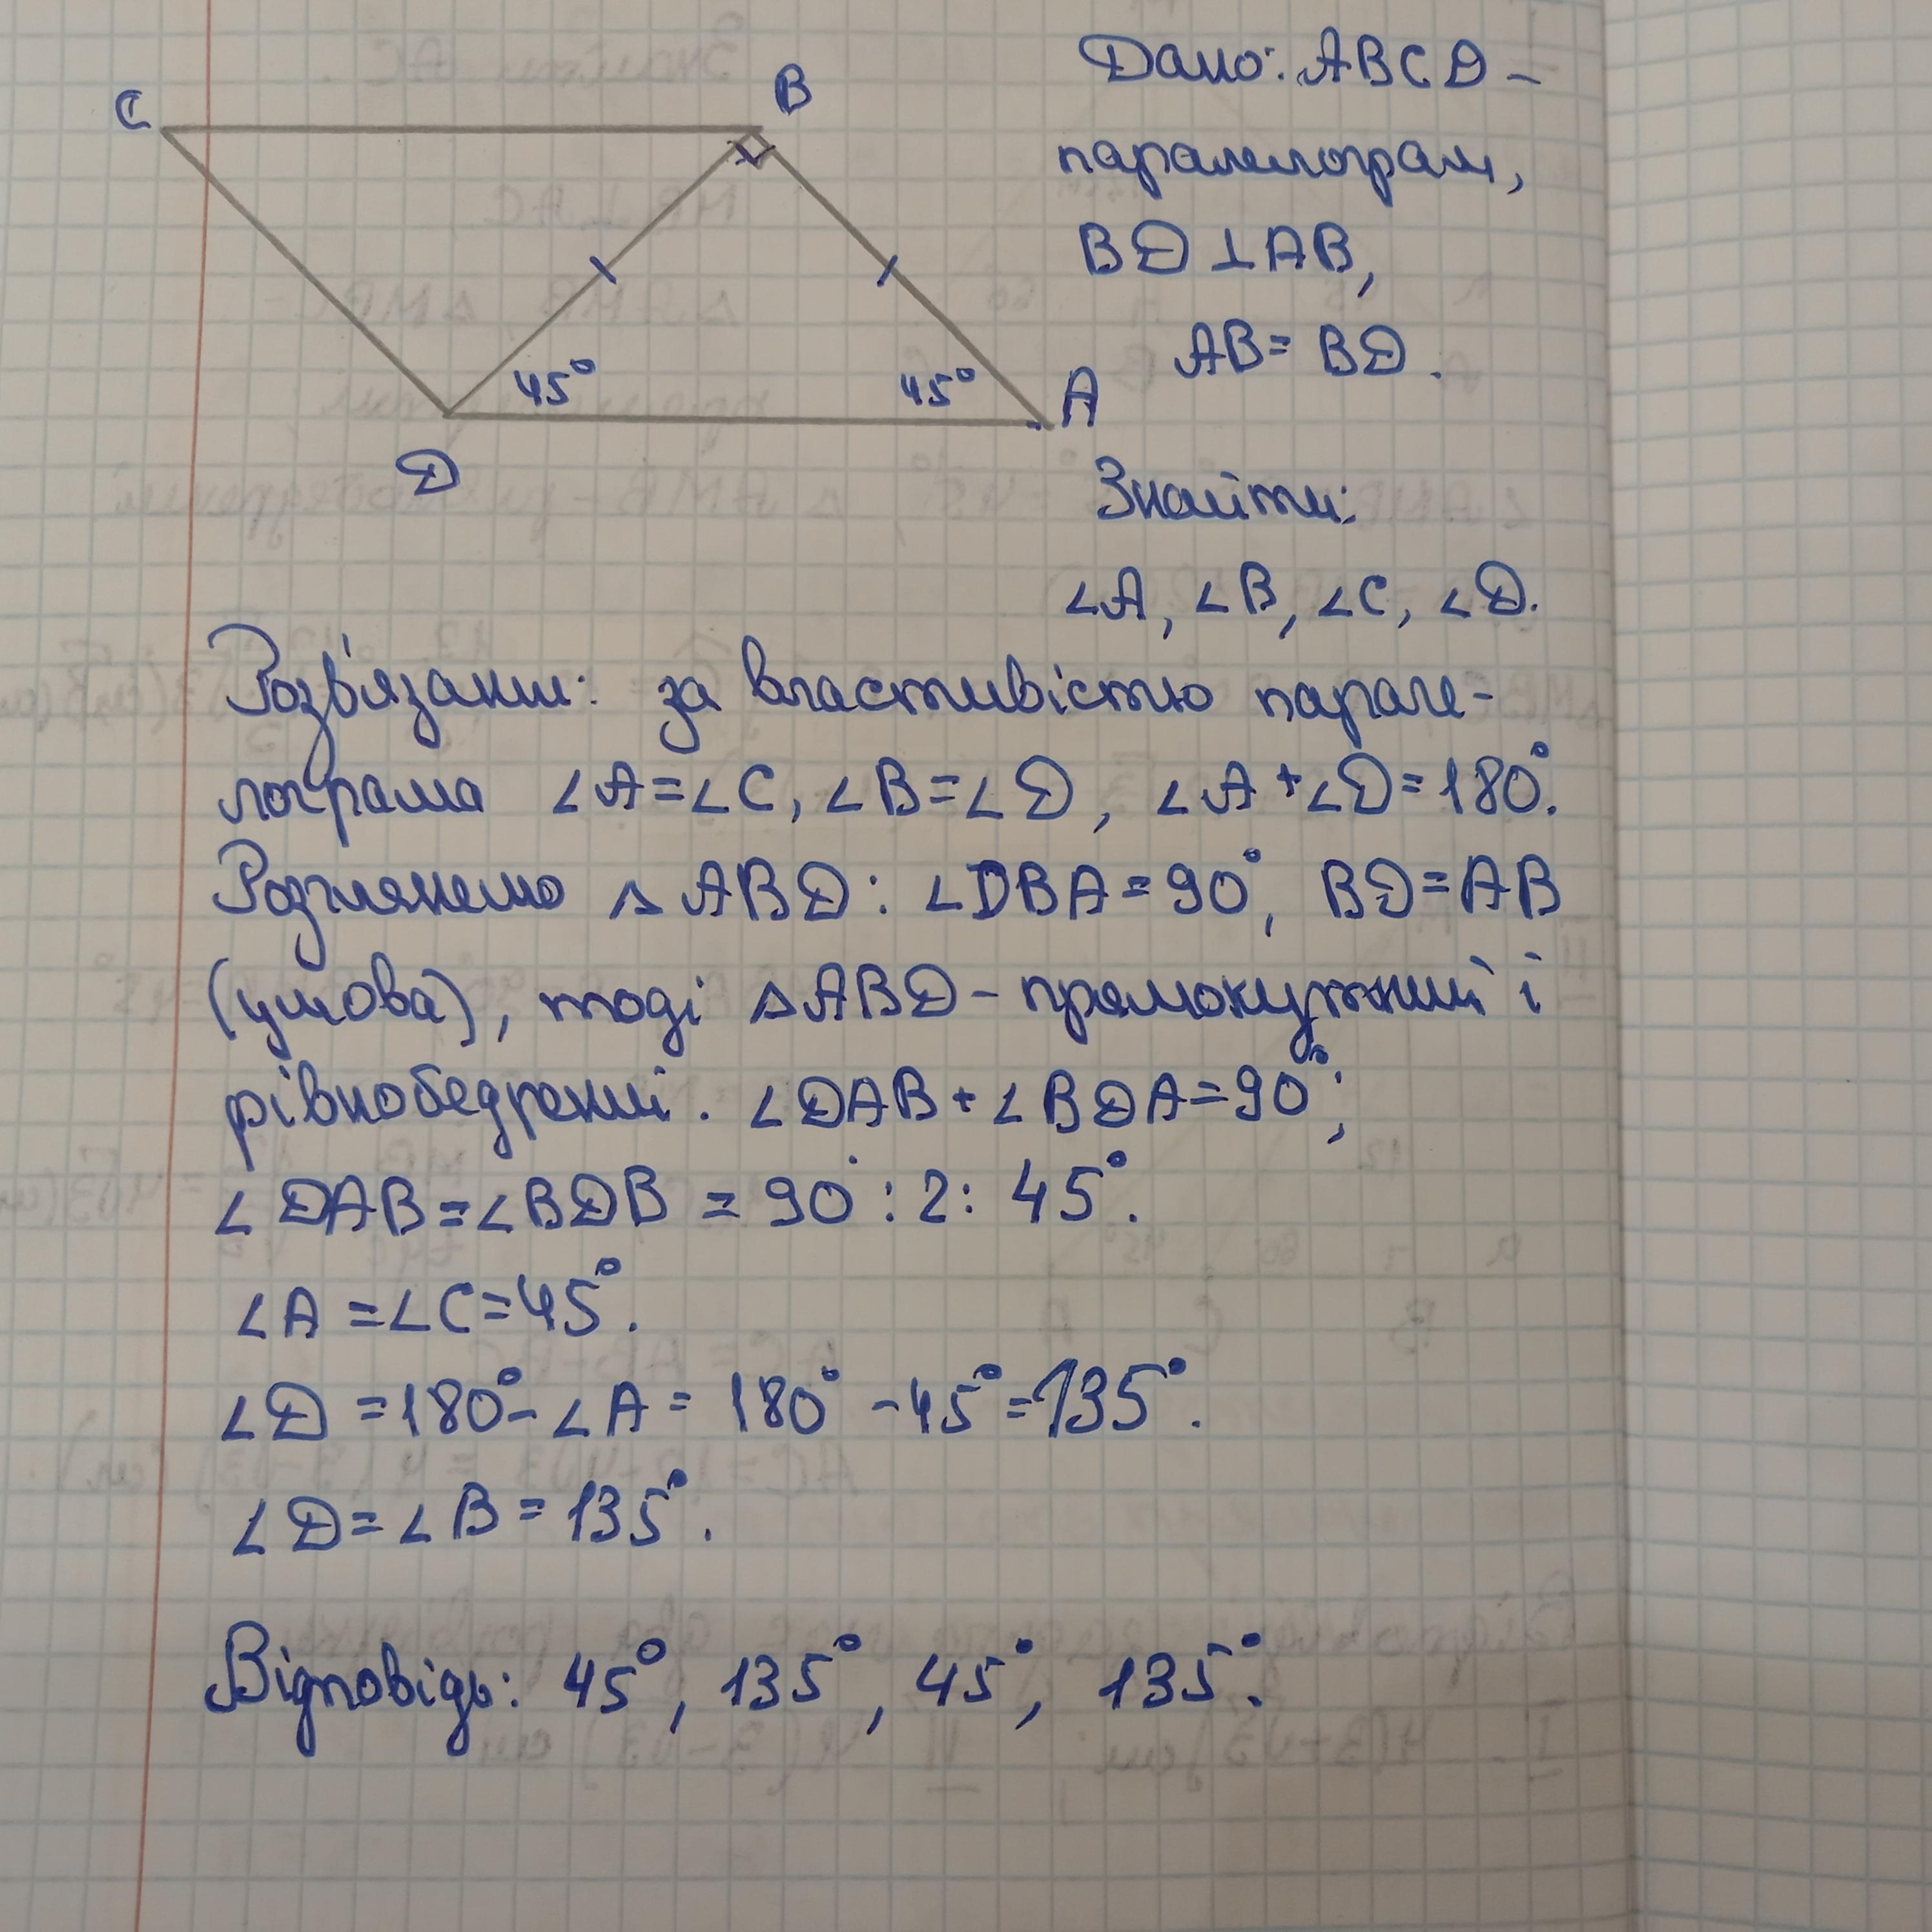 C
B
45°
45°
A
D
Дано: ABCD -
паралелограм,
BD ⊥ AB,
AB = BD.
Знайти:
∠A, ∠B, ∠C, ∠D.
Розв'язання: за властивістю парале-
лограма ∠A = ∠C, ∠B = ∠D, ∠A + ∠D = 180°.
Розглянемо △ ABD: ∠DBA = 90°, BD = AB
(умова), тоді △ABD - прямокутний і
рівнобедрений. ∠DAB + ∠BDA = 90°;
∠DAB = ∠BDB = 90° : 2 : 45°.
∠A = ∠C = 45°.
∠D = 180° - ∠A = 180° - 45° = 135°.
∠D = ∠B = 135°.
Відповідь: 45°, 135°, 45°, 135°.